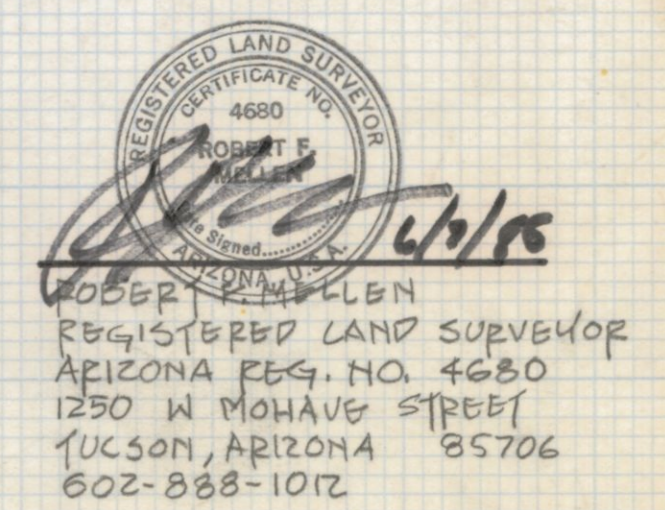 REGISTERED LAND SURVEYOR
CERTIFICATE NO.
4680
ROBERT F.
MELLEN
Signed..............
ARIZONA, U.S.A.
ROBERT F. MELLEN
REGISTERED LAND SURVEYOR
ARIZONA REG. NO. 4680
1250 W MOHAVE STREET
TUCSON, ARIZONA 85706
602-888-1012